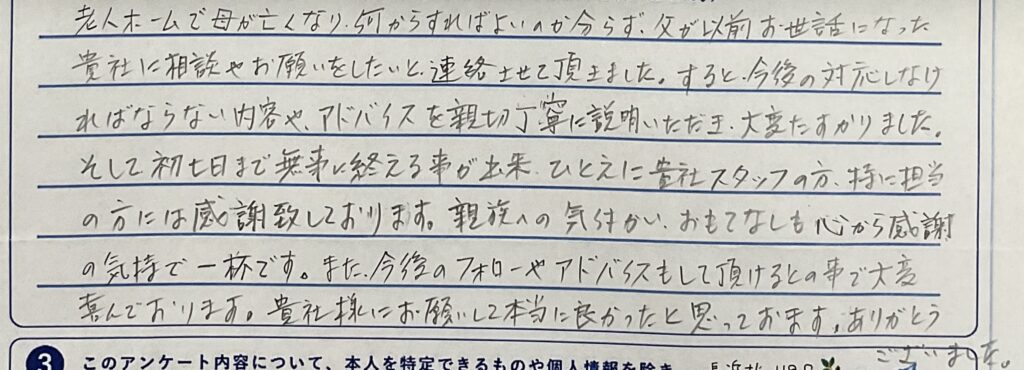 老人ホームで母が亡くなり、何からすればよいのか分らず、父が以前お世話になった
貴社に相談やお願いをしたいと、連絡させて頂きました。すると、今後の対応しなけ
ればならない内容や、アドバイスを親切丁寧に説明いただき、大変たすかりました。
そして初七日まで無事に終える事が出来、ひとえに貴社スタッフの方、特に担当
の方には感謝致しております。親族への気付かい、おもてなしも心から感謝
の気持で一杯です。また、今後のフォローやアドバイスもして頂けるとの事で大変
喜んでおります。貴社様にお願いして本当に良かったと思っております。ありがとう
ございました。
3 このアンケート内容について、本人を特定できるものや個人情報を除き